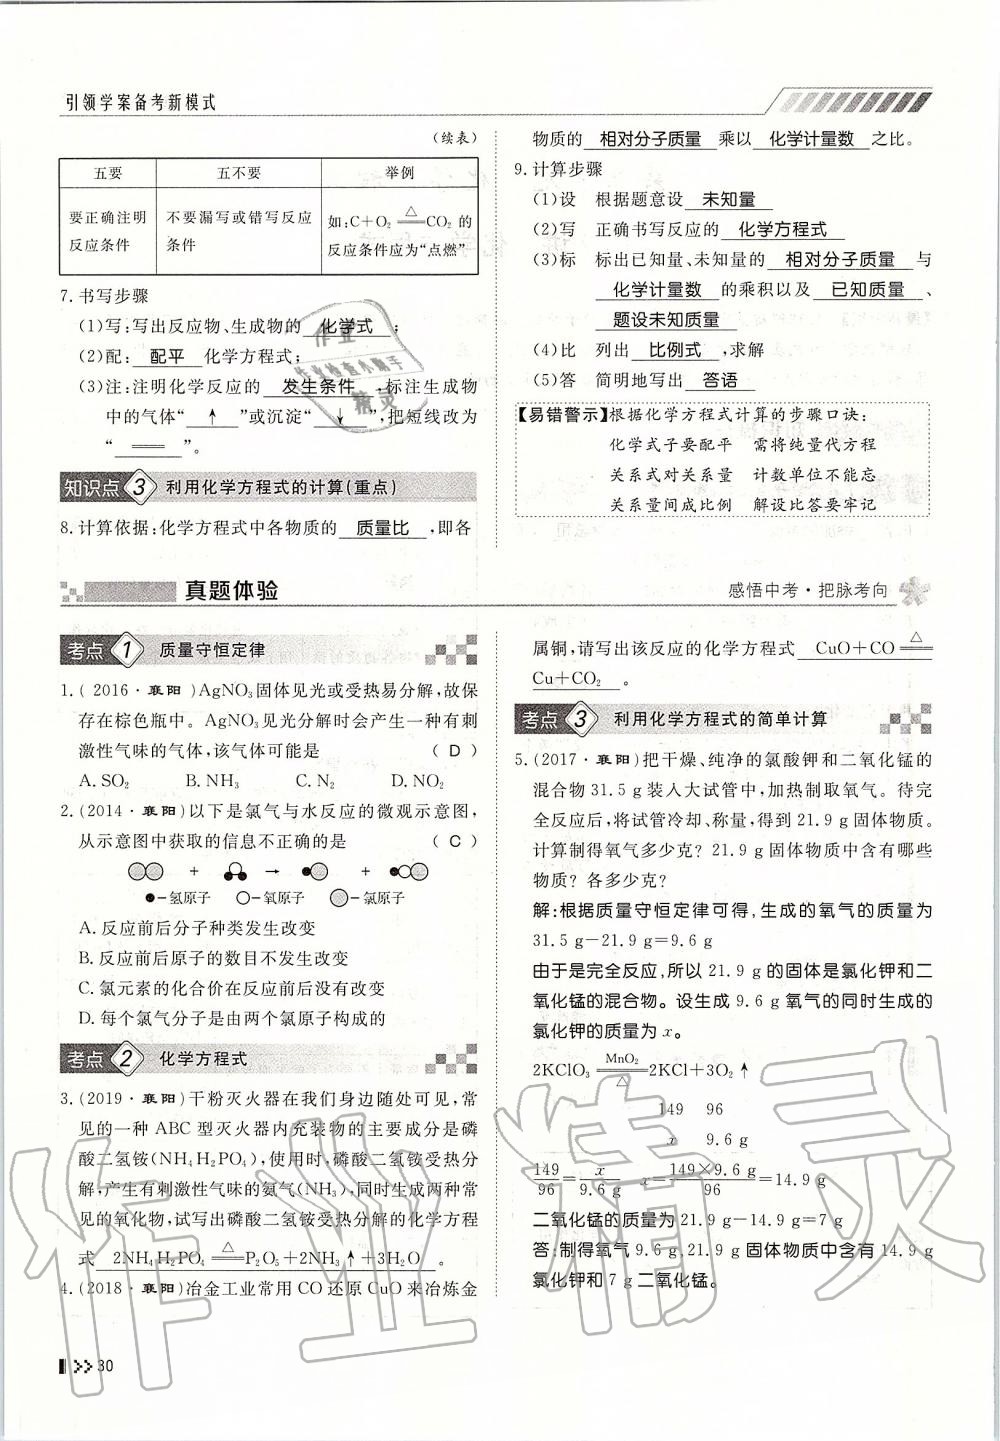 引领学案备考新模式
(续表)
五要 五不要 举例
要正确注明反应条件 不要漏写或错写反应条件 如:C+O₂ =△= CO₂ 的反应条件应为“点燃”
7. 书写步骤
(1)写:写出反应物、生成物的 化学式 ;
(2)配: 配平 化学方程式;
(3)注:注明化学反应的 发生条件 ,标注生成物
中的气体“ ↑ ”或沉淀“ ↓ ”,把短线改为
“ ══ ”。
知识点 3 利用化学方程式的计算(重点)
8. 计算依据:化学方程式中各物质的 质量比 ,即各
物质的 相对分子质量 乘以 化学计量数 之比。
9. 计算步骤
(1)设 根据题意设 未知量
(2)写 正确书写反应的 化学方程式
(3)标 标出已知量、未知量的 相对分子质量 与
化学计量数 的乘积以及 已知质量 、
题设未知质量
(4)比 列出 比例式 ,求解
(5)答 简明地写出 答语
【易错警示】根据化学方程式计算的步骤口诀:
化学式子要配平 需将纯量代方程
关系式对关系量 计数单位不能忘
关系量间成比例 解设比答要牢记
真题体验
感悟中考·把脉考向
考点 1 质量守恒定律
1. (2016·襄阳)AgNO₃固体见光或受热易分解,故保
存在棕色瓶中。AgNO₃见光分解时会产生一种有刺
激性气味的气体,该气体可能是 ( D )
A. SO₂ B. NH₃ C. N₂ D. NO₂
2. (2014·襄阳)以下是氯气与水反应的微观示意图,
从示意图中获取的信息不正确的是 ( C )
+ → +
●–氢原子 ○–氧原子 –氯原子
A. 反应前后分子种类发生改变
B. 反应前后原子的数目不发生改变
C. 氯元素的化合价在反应前后没有改变
D. 每个氯气分子是由两个氯原子构成的
考点 2 化学方程式
3. (2019·襄阳)干粉灭火器在我们身边随处可见,常
见的一种 ABC 型灭火器内充装物的主要成分是磷
酸二氢铵(NH₄H₂PO₄),使用时,磷酸二氢铵受热分
解,产生有刺激性气味的氨气(NH₃),同时生成两种常
见的氧化物,试写出磷酸二氢铵受热分解的化学方程
式 2NH₄H₂PO₄ =△= P₂O₅+2NH₃↑+3H₂O 。
4. (2018·襄阳)冶金工业常用 CO 还原 CuO 来冶炼金
属铜,请写出该反应的化学方程式 CuO+CO =△=
Cu+CO₂ 。
考点 3 利用化学方程式的简单计算
5. (2017·襄阳)把干燥、纯净的氯酸钾和二氧化锰的
混合物 31.5 g 装入大试管中,加热制取氧气。待完
全反应后,将试管冷却、称量,得到 21.9 g 固体物质。
计算制得氧气多少克? 21.9 g 固体物质中含有哪些
物质? 各多少克?
解:根据质量守恒定律可得,生成的氧气的质量为
31.5 g−21.9 g=9.6 g
由于是完全反应,所以 21.9 g 的固体是氯化钾和二
氧化锰的混合物。设生成 9.6 g 氧气的同时生成的
氯化钾的质量为 x。
2KClO₃ =MnO₂/△= 2KCl+3O₂↑
149 96
x 9.6 g
149/96 = x/9.6 g x = 149×9.6 g/96 = 14.9 g
二氧化锰的质量为 21.9 g−14.9 g=7 g
答:制得氧气 9.6 g,21.9 g 固体物质中含有 14.9 g
氯化钾和 7 g 二氧化锰。
30
作业精灵
作业
作业检查小助手
精灵